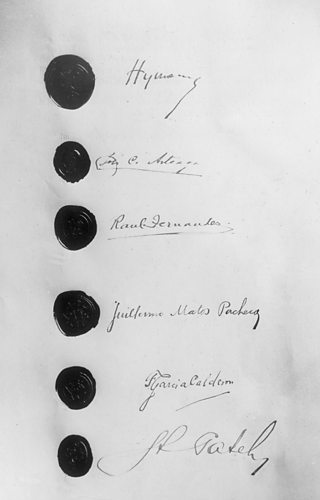 Hymans
C. Arteaga
Raul Fernandes.
Guillermo Matos Pacheco
F. Garcia Calderon
St Patek